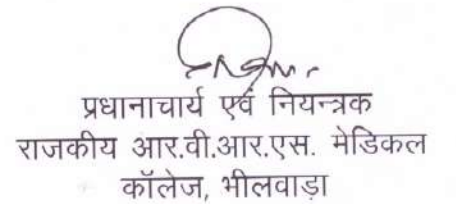 प्रधानाचार्य एवं नियन्त्रक
राजकीय आर.वी.आर.एस. मेडिकल
कॉलेज, भीलवाड़ा